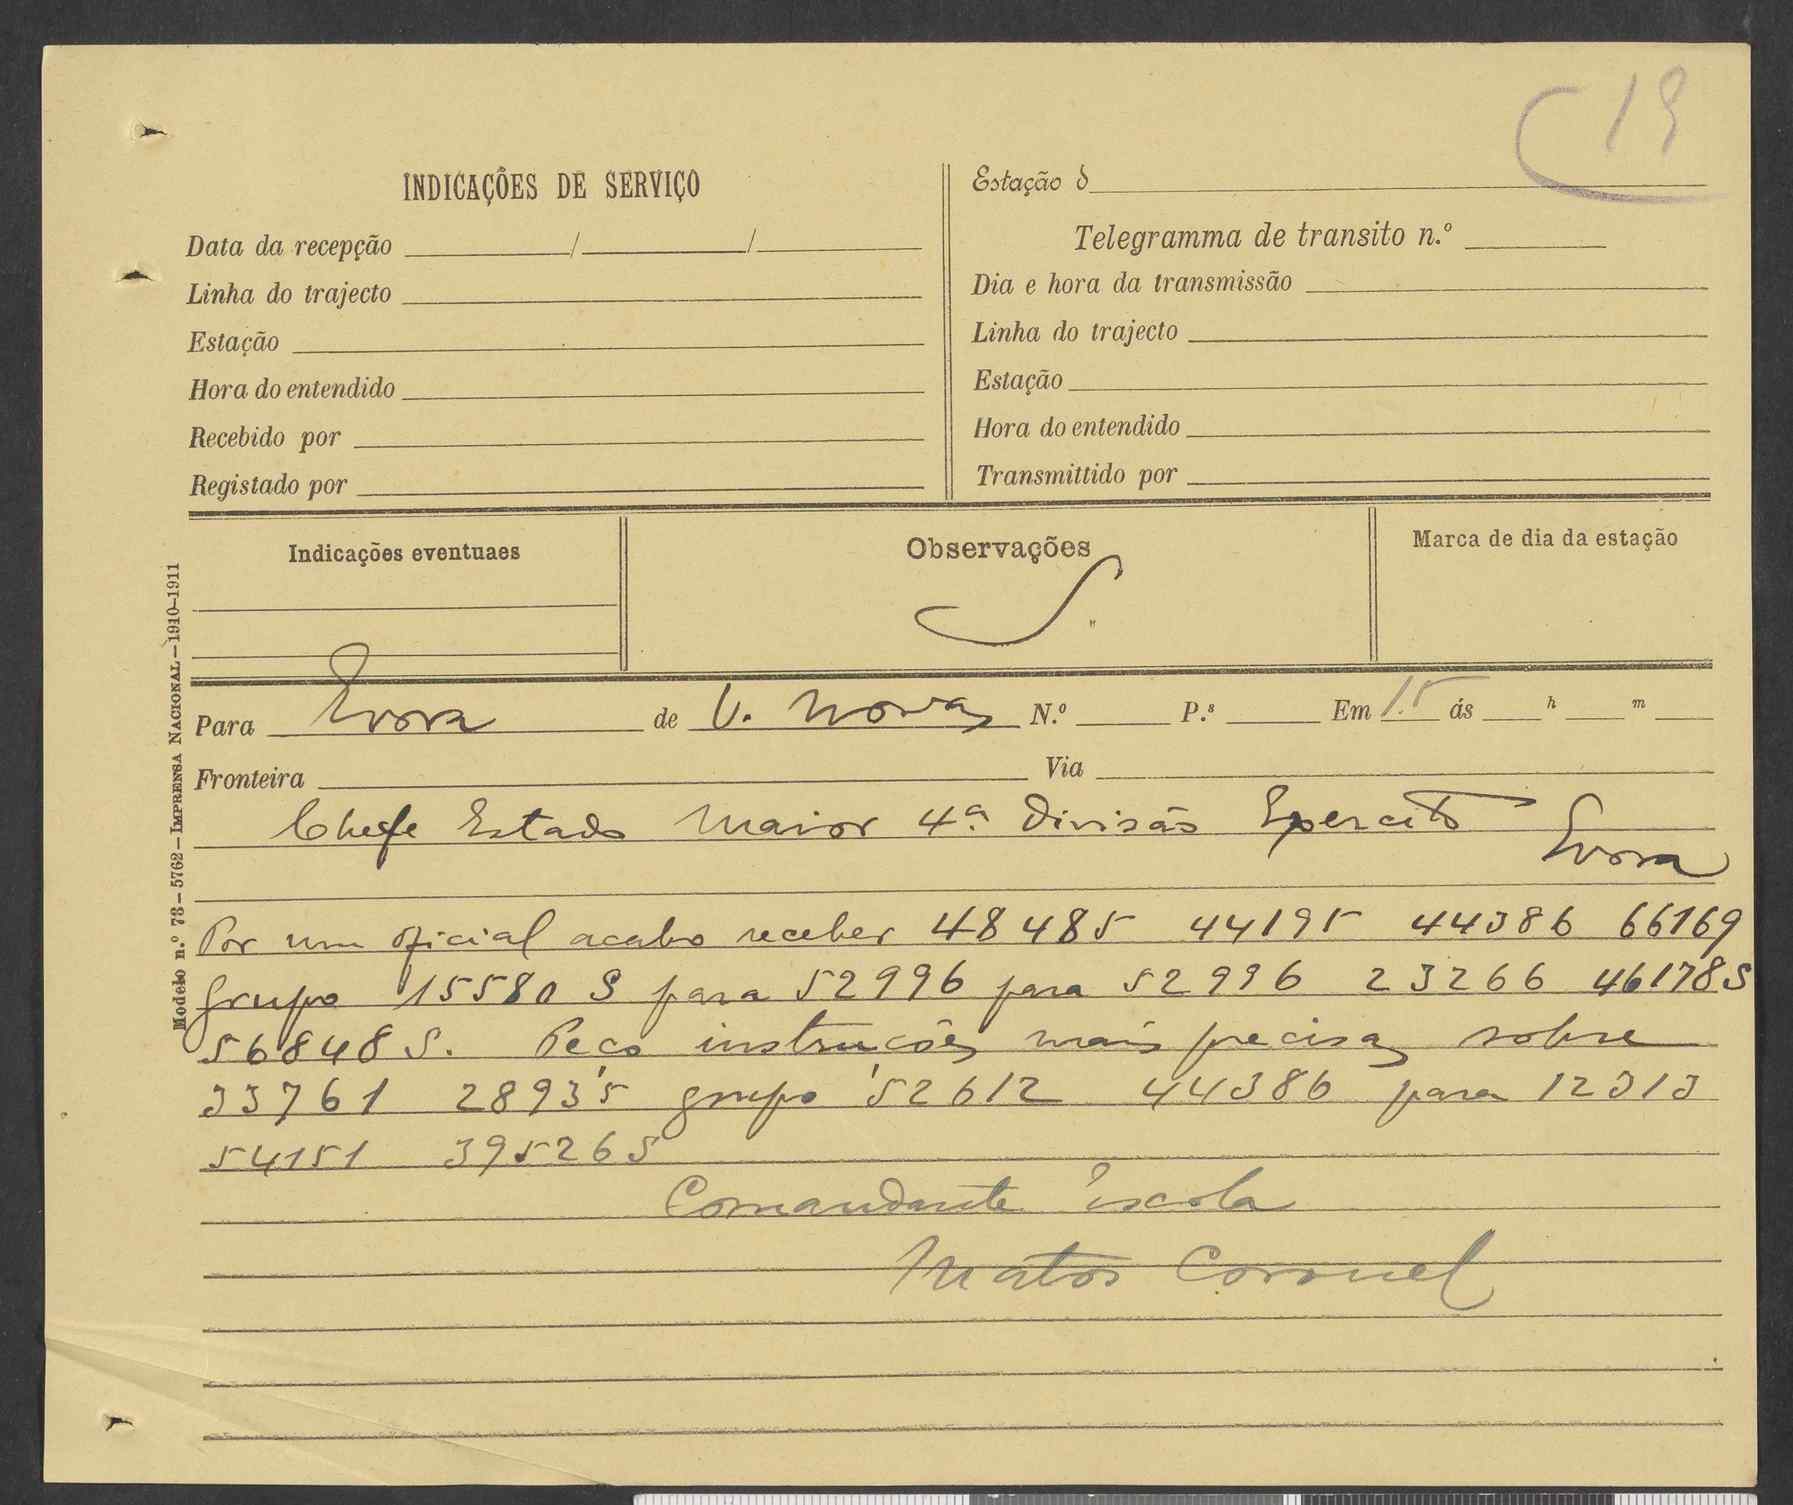 19
INDICAÇÕES DE SERVIÇO
Data da recepção / /
Linha do trajecto
Estação
Hora do entendido
Recebido por
Registado por
Estação d
Telegramma de transito n.º
Dia e hora da transmissão
Linha do trajecto
Estação
Hora do entendido
Transmittido por
Indicações eventuaes
Observações
S
Marca de dia da estação
Modelo n.º 73 – 5762 – IMPRENSA NACIONAL – 1910–1911
Para Evora de V. Novas N.º P.s Em 15 ás h m
Fronteira Via
Chefe Estado Maior 4ª Divisão Exercito
Evora
Por um oficial acabo receber 48485 44195 44386 66169
grupo 15580 S para 52996 para 52996 23266 46178S
56848 S. Peço instrucões mais precisas sobre
33761 28935 grupo 52612 44386 para 12313
54151 39526S
Comandante escola
Matos Coronel